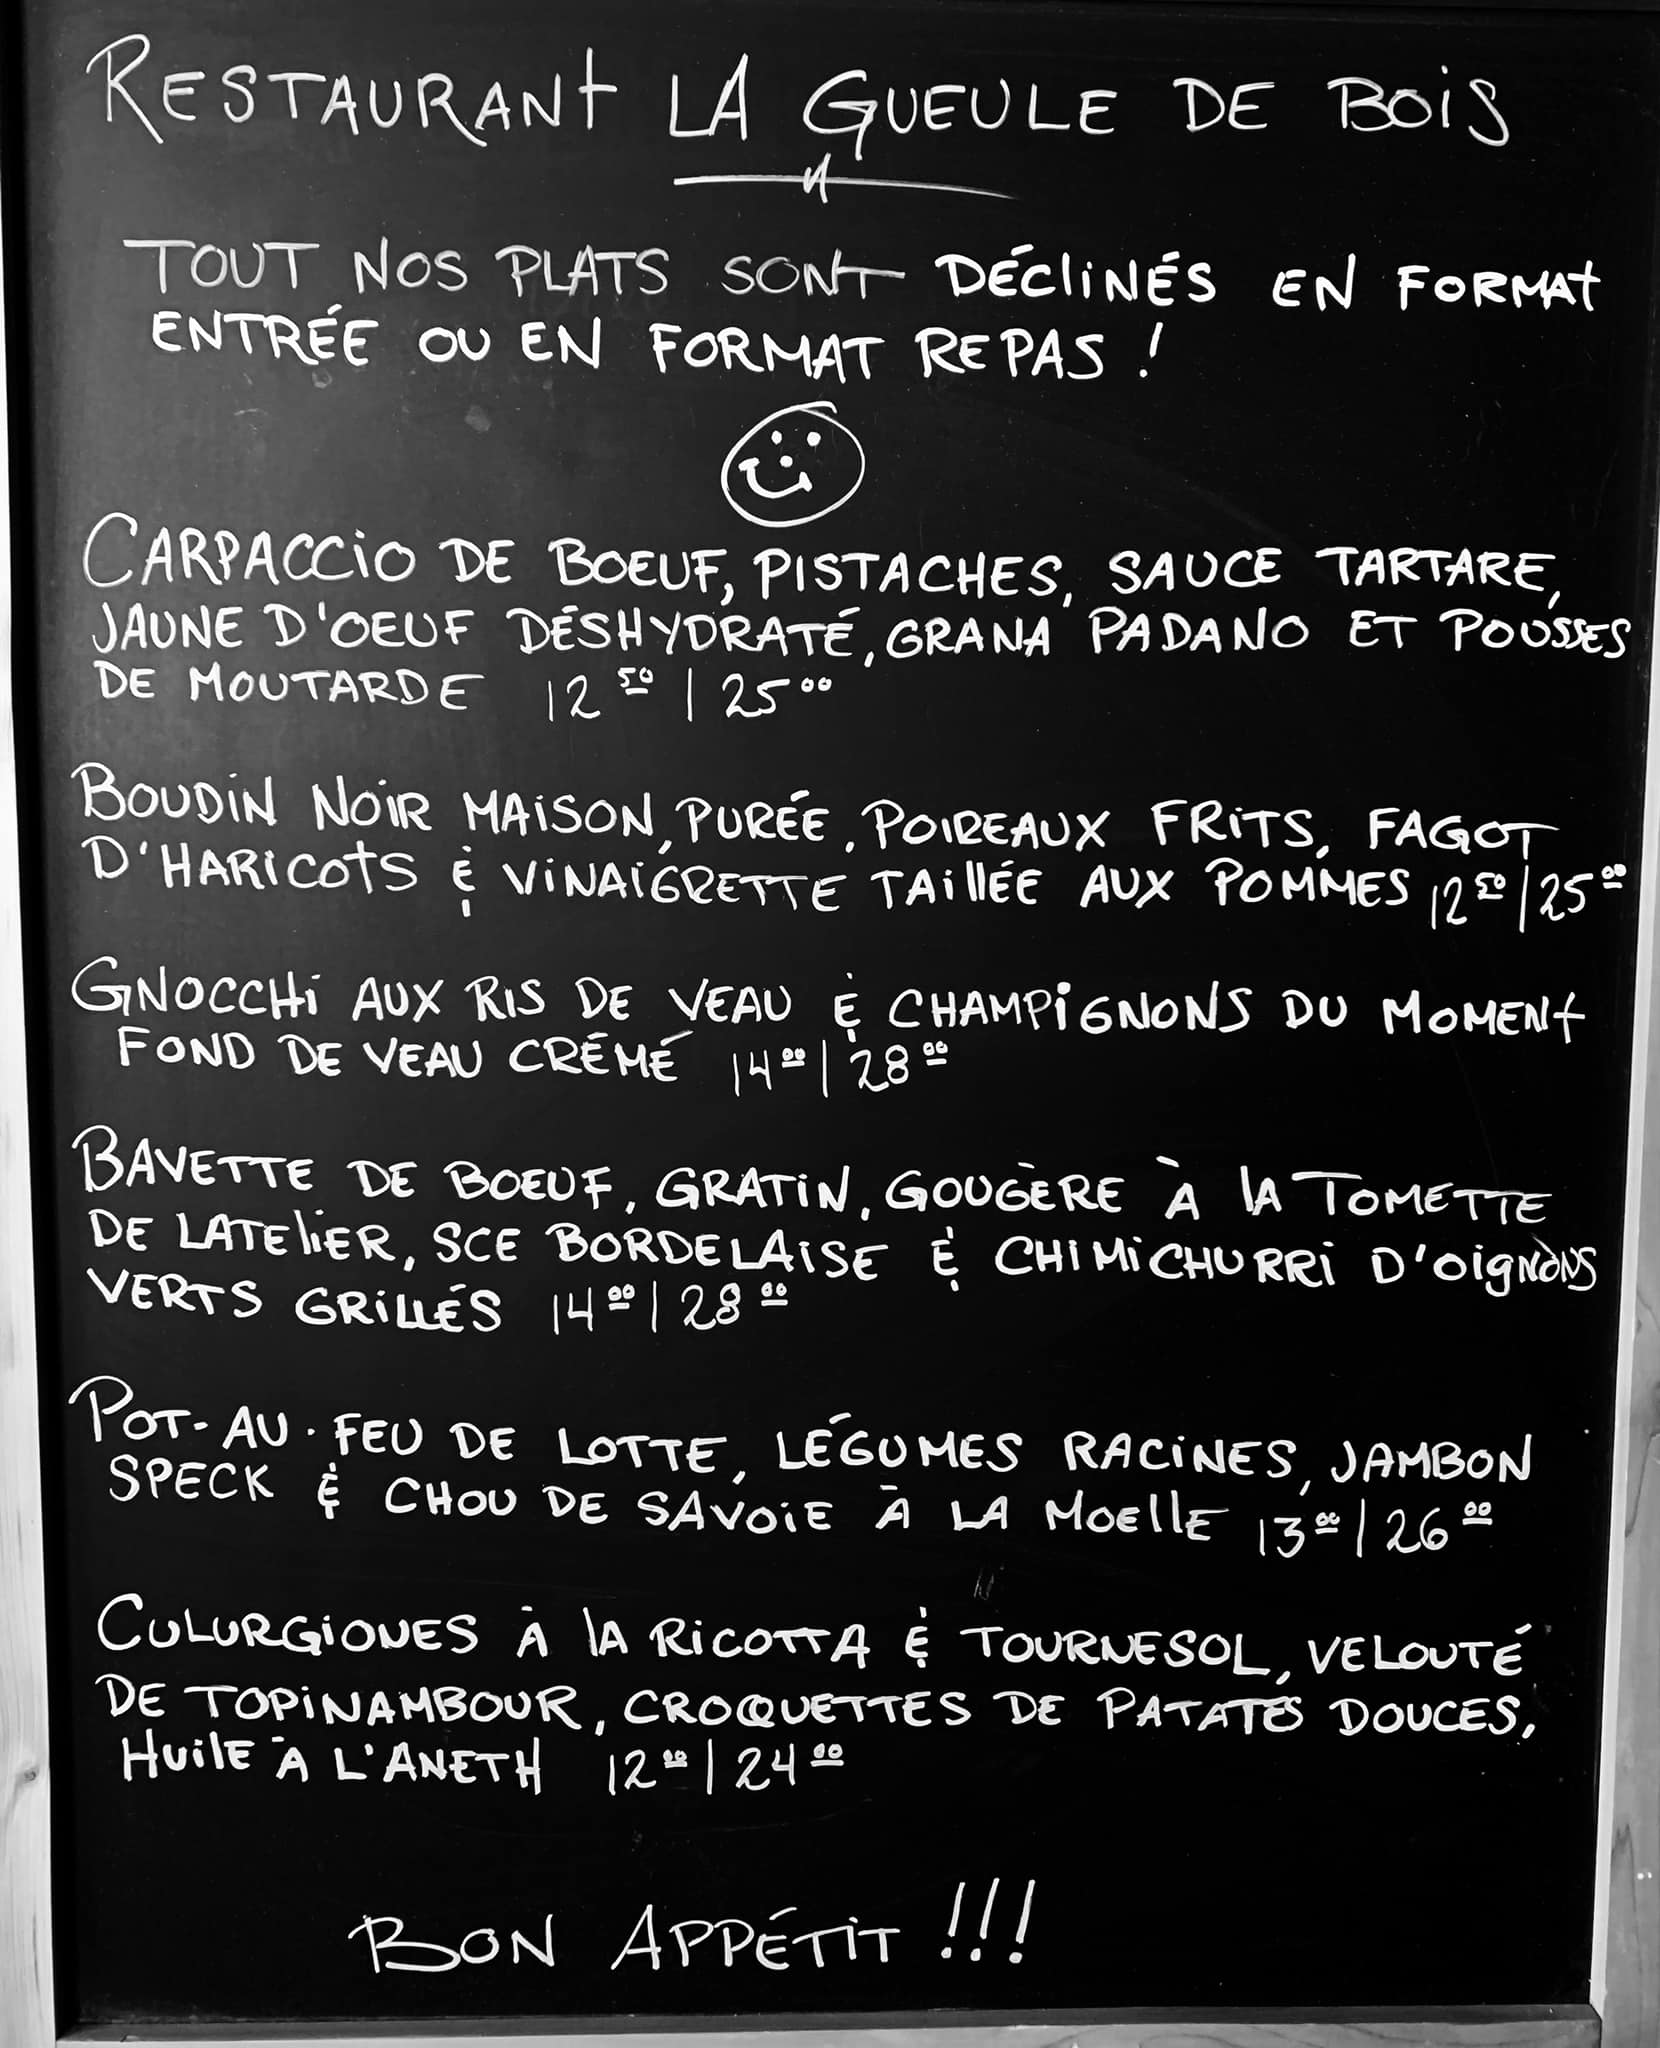 RESTAURANT LA GUEULE DE BOIS
TOUT NOS PLATS SONT DÉCLINÉS EN FORMAT
ENTRÉE OU EN FORMAT REPAS !
CARPACCIO DE BOEUF, PISTACHES, SAUCE TARTARE,
JAUNE D'OEUF DÉSHYDRATÉ, GRANA PADANO ET POUSSES
DE MOUTARDE 12 50 | 25 00
BOUDIN NOIR MAISON, PURÉE, POIREAUX FRITS, FAGOT
D'HARICOTS & VINAIGRETTE TAILLÉE AUX POMMES 12 50 | 25 00
GNOCCHI AUX RIS DE VEAU & CHAMPIGNONS DU MOMENT
FOND DE VEAU CRÉMÉ 14 00 | 28 00
BAVETTE DE BOEUF, GRATIN, GOUGÈRE À LA TOMETTE
DE LATELIER, SCE BORDELAISE & CHIMICHURRI D'OIGNONS
VERTS GRILLÉS 14 00 | 28 00
POT-AU-FEU DE LOTTE, LÉGUMES RACINES, JAMBON
SPECK & CHOU DE SAVOIE À LA MOELLE 13 00 | 26 00
CULURGIONES À LA RICOTTA & TOURNESOL, VELOUTÉ
DE TOPINAMBOUR, CROQUETTES DE PATATES DOUCES,
HUILE À L'ANETH 12 00 | 24 00
BON APPÉTIT !!!